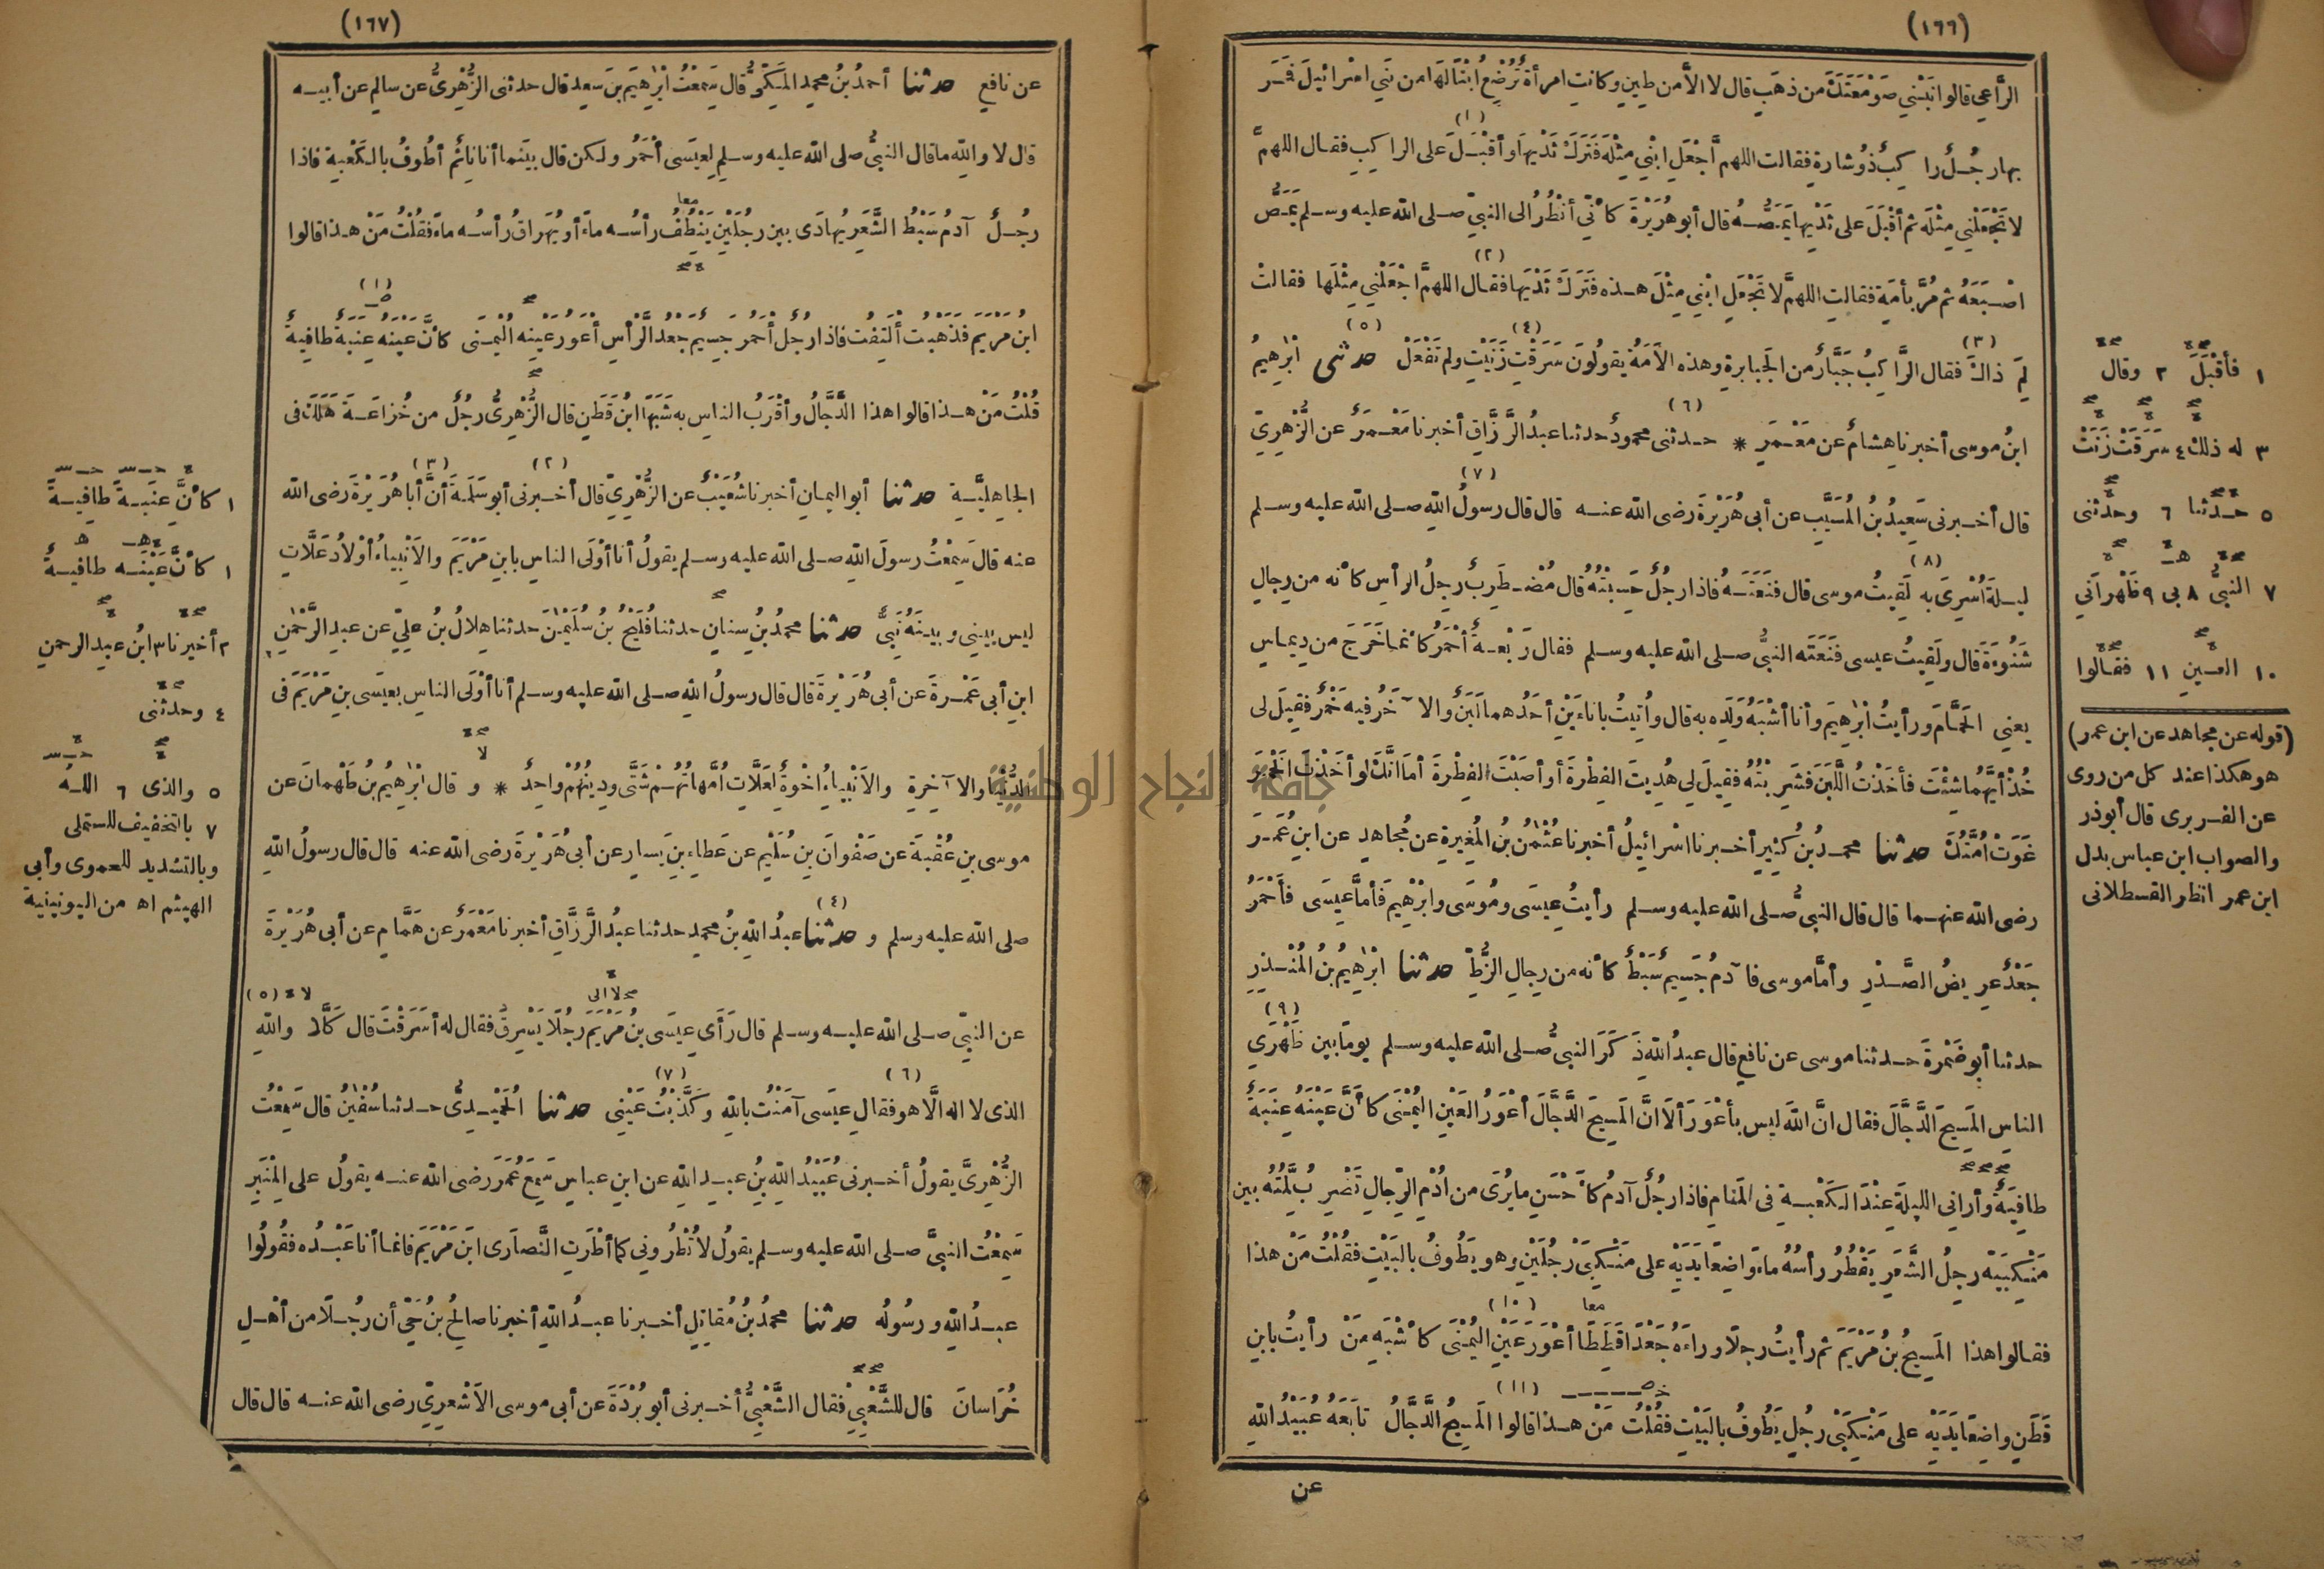 (١٦٦)
الرَّاعِي قالوا نَبْنِي صَوْمَعَتَكَ من ذهَبٍ قال لا إلاَّ من طِينٍ وكانت امرأةٌ تُرْضِعُ ابْنًا لَهَا من بَنِي إسْرائيلَ فَمَرَّ
(١)
بها رجُلٌ راكِبٌ ذُو شارةٍ فقالت اللهمَّ اجْعَلِ ابْنِي مِثْلَهُ فَتَرَكَ ثَدْيَها وأقْبَلَ على الراكِبِ فقال اللهمَّ
لا تَجْعَلْنِي مِثْلَه ثم أقْبَلَ على ثَدْيِها يَمَصُّهُ قال أبو هُرَيْرَةَ كأنِّي أنْظُرُ إلى النبيِّ صلى الله عليه وسلم يَمَصُّ
(٢)
اصْبَعَهُ ثم مُرَّ بأمَةٍ فقالتِ اللهمَّ لا تَجْعَلِ ابْنِي مِثْلَ هذه فَتَرَكَ ثَدْيَها فقال اللهمَّ اجْعَلْنِي مِثْلَها فقالتْ
(٣) (٤) (٥)
لِمَ ذاكَ فقال الرَّاكِبُ جَبَّارٌ من الجَبابرةِ وهذه الأمَةُ يقولُونَ سَرَقْتِ زَنَيْتِ ولم تَفْعَلْ حدثني إبْرٰهِيمُ
(٦)
ابنُ موسى أخبرنا هِشامٌ عن مَعْمَرٍ * حدثنى محمودٌ حدثنا عبدُ الرَّزَّاقِ أخبرنا مَعْمَرٌ عن الزُّهْرِيِّ
(٧)
قال أخبرنى سَعِيدُ بنُ المُسَيَّبِ عن أبى هُرَيْرَةَ رضى الله عنه قال قال رسولُ اللهِ صلى الله عليه وسلم
(٨)
ليلةَ أُسْرِيَ به لَقِيتُ موسى قال فَنَعَتَهُ فإذا رجُلٌ حَسِبْتُهُ قال مُضْطَرِبٌ رَجِلُ الرأسِ كأنه من رِجالِ
شَنُوءَةَ قال ولَقِيتُ عيسى فَنَعَتَه النبيُّ صلى الله عليه وسلم فقال رَبْعةٌ أحْمَرُ كأنما خَرَجَ من دِيماسٍ
يعنِي الحَمَّامَ ورأيتُ إبْرٰهِيمَ وأنا أشْبَهُ ولَدِه به قال وأُتِيتُ بإناءَيْنِ أحَدُهما لَبَنٌ والآخَرُ فيه خَمْرٌ فقِيلَ لى
خُذْ أيَّهُما شِئْتَ فأخَذْتُ اللَّبَنَ فشَرِبْتُهُ فقِيلَ لِي هُدِيتَ الفِطْرةَ أو أصَبْتَ الفِطْرةَ أما إنَّكَ لو أخَذْتَ الخَمْرَ
غَوَتْ أُمَّتُكَ حدثنا محمدُ بنُ كَثِيرٍ أخبرنا إسْرائِيلُ أخبرنا عُثْمٰنُ بنُ المُغِيرةِ عن مُجاهدٍ عن ابنِ عُمَرَ
رضى الله عنهما قال قال النبيُّ صلى الله عليه وسلم رأيتُ عيسَى ومُوسَى وإبْرٰهِيمَ فأمَّا عيسَى فأحْمَرُ
جَعْدٌ عَرِيضُ الصَّدْرِ وأمَّا موسى فآدمُ جَسِيمٌ سَبْطٌ كأنه من رِجالِ الزُّطِّ حدثنا إبْرٰهِيمُ بنُ المُنْذِرِ
(٩)
حدثنا أبو ضَمْرةَ حدثنا موسى عن نافعٍ قال عبدُ اللهِ ذَكَرَ النبيُّ صلى الله عليه وسلم يومًا بين ظَهْرَيِ
الناسِ المَسِيحَ الدَّجَّالَ فقال إنَّ اللهَ ليس بأعْوَرَ ألا إنَّ المَسِيحَ الدَّجَّالَ أعْوَرُ العَيْنِ اليُمْنَى كأنَّ عَيْنَهُ عِنَبَةٌ
طافِيَةٌ وأرانِي الليلةَ عِنْدَ الكَعْبةِ فى المَنامِ فإذا رجُلٌ آدمُ كأحْسَنِ ما يُرَى من أُدْمِ الرِّجالِ تَضْرِبُ لِمَّتُهُ بين
مَنْكِبَيْهِ رجِلُ الشَّعَرِ يَقْطُرُ رأسُهُ ماءً واضِعًا يَدَيْهِ على مَنْكِبَىْ رجُلَيْنِ وهو يَطُوفُ بالبَيْتِ فقُلْتُ مَنْ هذا
معا (١٠)
فقالوا هذا المَسِيحُ بنُ مَرْيَمَ ثم رأيتُ رجلًا وراءَهُ جَعْدًا قَطَطًا أعْوَرَ عَيْنِ اليُمْنَى كأشْبَهِ مَنْ رأيتُ بابنِ
(١١)
قَطَنٍ واضِعًا يَدَيْهِ على مَنْكِبَىْ رجُلٍ يَطُوفُ بالبَيْتِ فقُلْتُ مَنْ هذا قالوا المَسِيحُ الدَّجَّالُ تابَعَهُ عُبَيْدُ اللهِ
عن
١ فأقْبَلَ ٢ وقال
٣ له ذلك ٤ سَرَقَتْ زَنَتْ
٥ حدّثنا ٦ وحدّثنى
٧ النبيُّ ٨ بى ٩ ظَهْرَاني
١٠ العينِ ١١ فقالوا
(قوله عن مجاهد عن ابن عمر)
هو هكذا عند كل من روى
عن الفربرى قال أبو ذر
والصواب ابن عباس بدل
ابن عمر انظر القسطلانى
(١٦٧)
عن نافعٍ حدثنا أحمدُ بنُ محمدٍ المَكِّىُّ قال سَمِعْتُ إبْرٰهِيمَ بنَ سَعِيدٍ قال حدثنى الزُّهْرِىُّ عن سالمٍ عن أبيه
قال لا واللهِ ما قال النبىُّ صلى الله عليه وسلم لِعِيسَى أحْمَرُ ولكن قال بينَما أنا نائمٌ أطُوفُ بالكَعْبةِ فإذا
معا
رجُلٌ آدمُ سَبْطُ الشَّعَرِ يُهادَى بين رجُلَيْنِ يَنْطِفُ رأسُه ماءً أو يُهَراقُ رأسُه ماءً فقُلْتُ مَنْ هذا قالوا
(١)
ابنُ مَرْيَمَ فذَهَبْتُ ألْتَفِتُ فإذا رجُلٌ أحْمَرُ جَسِيمٌ جَعْدُ الرَّأسِ أعْوَرُ عَيْنِه اليُمْنَى كأنَّ عَيْنَهُ عِنَبَةٌ طافِيةٌ
قُلْتُ مَنْ هذا قالوا هذا الدَّجَّالُ وأقْرَبُ الناسِ به شَبَهًا ابنُ قَطَنٍ قال الزُّهْرِىُّ رجُلٌ من خُزاعَةَ هَلَكَ فى
(٢) (٣)
الجاهِليَّةِ حدثنا أبو اليمانِ أخبرنا شُعَيْبٌ عن الزُّهْرِيِّ قال أخبرنى أبو سَلَمةَ أنَّ أبا هُرَيْرةَ رضى الله
عنه قال سَمِعْتُ رسولَ اللهِ صلى الله عليه وسلم يقولُ أنا أوْلَى الناسِ بابنِ مَرْيَمَ والأنْبِياءُ أوْلادُ عَلَّاتٍ
ليس بينِى وبينَهُ نَبِىٌّ حدثنا محمدُ بنُ سِنانٍ حدثنا فُلَيْحُ بنُ سُلَيْمٰنَ حدثنا هِلالُ بنُ عليٍّ عن عبدِ الرَّحْمٰنِ
ابنِ أبى عَمْرةَ عن أبى هُرَيْرةَ قال قال رسولُ اللهِ صلى الله عليه وسلم أنا أوْلَى الناسِ بعِيسَى بنِ مَرْيَمَ فى
الدُّنْيا والآخِرةِ والأنْبِياءُ إخْوةٌ لِعَلَّاتٍ أُمَّهاتُهُمْ شَتَّى ودِينُهُمْ واحِدٌ * وقال إبْرٰهِيمُ بنُ طَهْمانَ عن
موسى بنِ عُقْبةَ عن صَفْوانَ بنِ سُلَيْمٍ عن عَطاءِ بنِ يَسارٍ عن أبى هُرَيْرةَ رضى الله عنه قال قال رسولُ اللهِ
(٤)
صلى الله عليه وسلم و حدثنا عبدُ اللهِ بنُ محمدٍ حدثنا عبدُ الرَّزَّاقِ أخبرنا مَعْمَرٌ عن هَمَّامٍ عن أبى هُرَيْرةَ
لا الى (٥)
عن النبيِّ صلى الله عليه وسلم قال رَأَى عِيسَى بنُ مَرْيَمَ رجُلًا يَسْرِقُ فقال له أسَرَقْتَ قال كَلَّا واللهِ
(٦) (٧)
الذى لا إله إلَّا هو فقال عِيسَى آمَنْتُ باللهِ وكَذَّبْتُ عَيْنِى حدثنا الحُمَيْدِىُّ حدثنا سُفْيٰنُ قال سَمِعْتُ
الزُّهْرِىَّ يقولُ أخبرنى عُبَيْدُ اللهِ بنُ عبدِ اللهِ عن ابنِ عباسٍ سَمِعَ عُمَرَ رضى الله عنه يقولُ على المِنْبَرِ
سَمِعْتُ النبىَّ صلى الله عليه وسلم يقولُ لا تُطْرُونِى كما أطْرَتِ النَّصارَى ابنَ مَرْيَمَ فإنما أنا عَبْدُه فقُولُوا
عبدُ اللهِ ورسُولُه حدثنا محمدُ بنُ مُقاتِلٍ أخبرنا عبدُ اللهِ أخبرنا صالحُ بنُ حَيٍّ أن رجُلًا من أهْلِ
خُراسانَ قال للشَّعْبِيِّ فقال الشَّعْبِيُّ أخبرنى أبو بُرْدَةَ عن أبى موسى الأشْعَرِيِّ رضى الله عنه قال قال
١ كأنَّ عِنَبةً طافِيةً
١ كأنَّ عَيْنَه طافيةٌ
٢ أخبرنا ٣ ابنُ عبدِ الرحمنِ
٤ وحدثنى
٥ والذى ٦ اللهُ
٧ بالتخفيف للمستملى
وبالتشديد للحموى وأبى
الهيثم اه من اليونينية
جامعة النجاح الوطنية